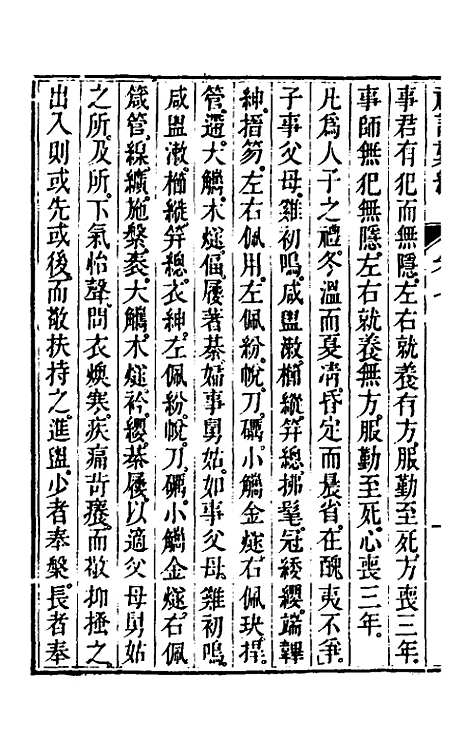 事君有犯而無隱、左右就養有方、服勤至死、方喪三年、
事師無犯無隱、左右就養無方、服勤至死、心喪三年、
凡爲人子之禮、冬溫而夏凊、昏定而晨省、在醜夷不爭、
子事父母、雞初鳴、咸盥漱、櫛縰、笄總、拂髦、冠緌纓、端韠
紳、搢笏、左右佩用、左佩紛帨、刀礪、小觿、金燧、右佩玦捍、
管遰、大觿、木燧、偪屨著綦、婦事舅姑、如事父母、雞初鳴、
咸盥漱、櫛縰、笄總、衣紳、左佩紛帨、刀礪、小觿、金燧、右佩
箴管、線纊、施縏袠、大觿、木燧、衿纓、綦屨、以適父母舅姑
之所、及所、下氣怡聲、問衣燠寒、疾痛苛癢、而敬抑搔之、
出入則或先或後、而敬扶持之、進盥、少者奉槃、長者奉